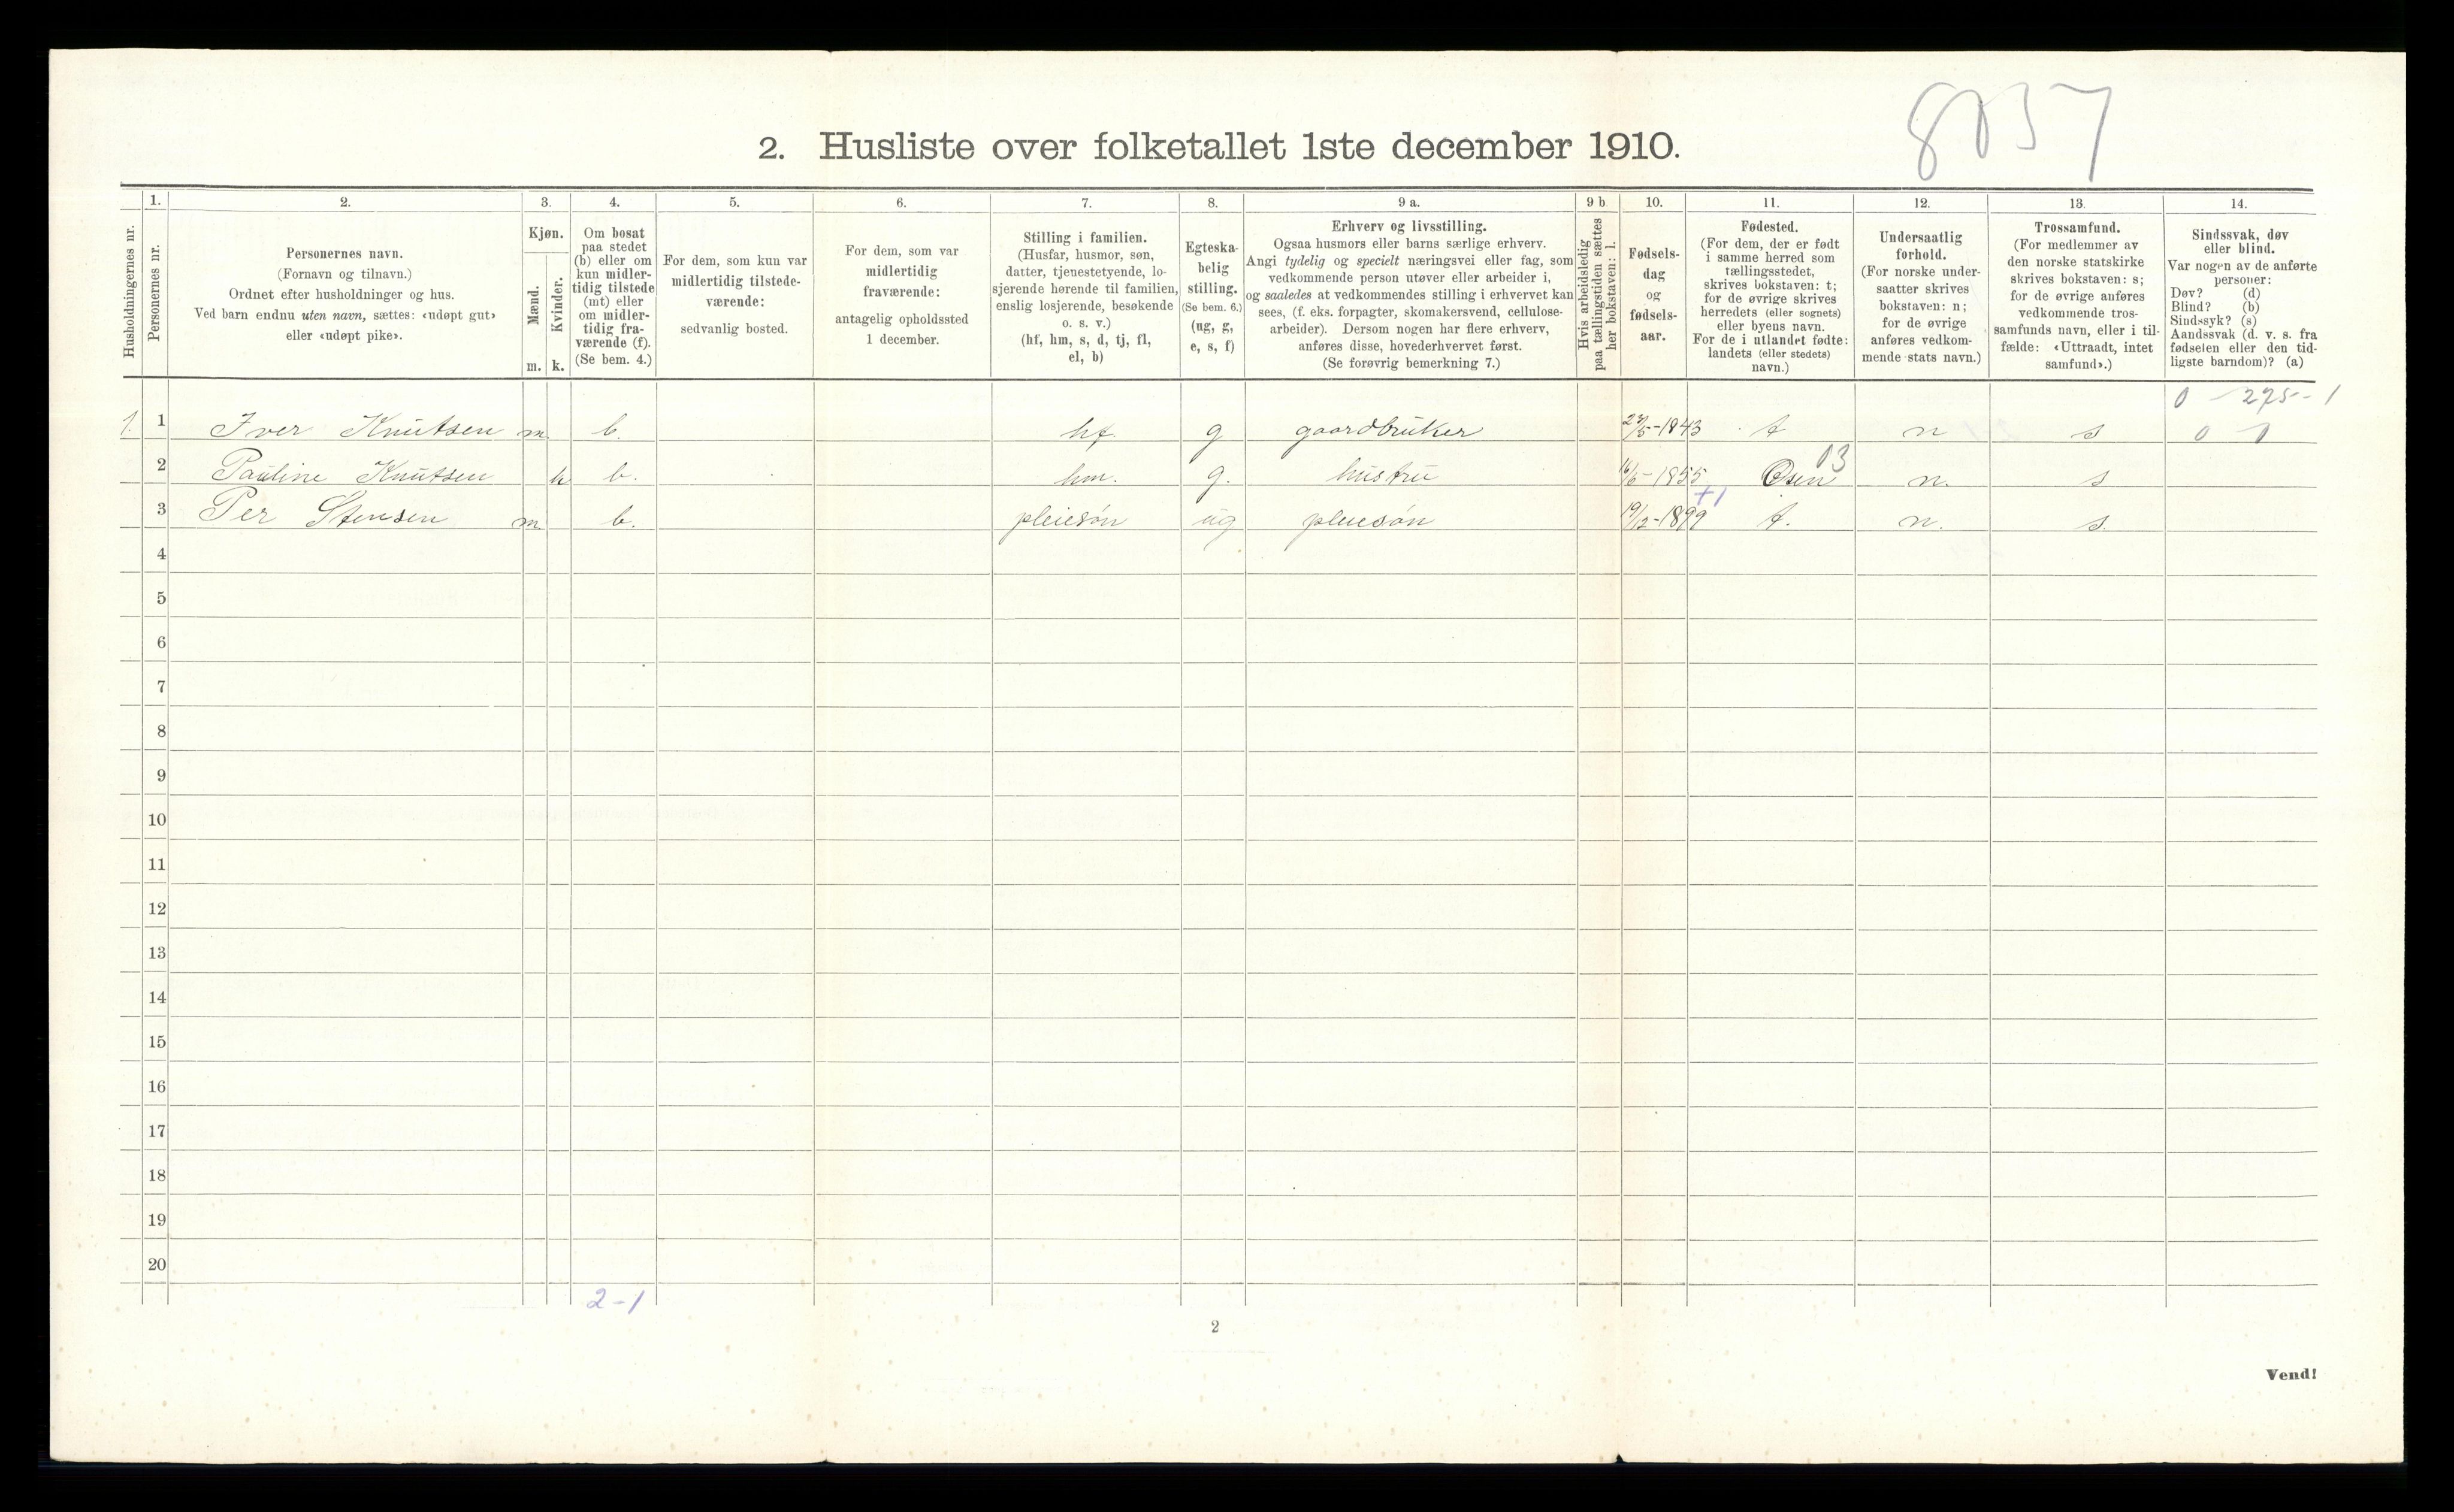 2. Husliste over folketallet 1ste december 1910.
Husholdningernes nr.
1. Personernes nr.
2. Personernes navn.
(Fornavn og tilnavn.)
Ordnet efter husholdninger og hus.
Ved barn endnu uten navn, sættes: «udøpt gut»
eller «udøpt pike».
3. Kjøn.
Mænd. m.
Kvinder. k.
4. Om bosat
paa stedet
(b) eller om
kun midler-
tidig tilstede
(mt) eller
om midler-
tidig fra-
værende (f).
(Se bem. 4.)
5. For dem, som kun var
midlertidig tilstede-
værende:
sedvanlig bosted.
6. For dem, som var
midlertidig
fraværende:
antagelig opholdssted
1 december.
7. Stilling i familien.
(Husfar, husmor, søn,
datter, tjenestetyende, lo-
sjerende hørende til familien,
enslig losjerende, besøkende
o. s. v.)
(hf, hm, s, d, tj, fl,
el, b)
8. Egteska-
belig
stilling.
(Se bem. 6.)
(ug, g,
e, s, f)
9 a. Erhverv og livsstilling.
Ogsaa husmors eller barns særlige erhverv.
Angi tydelig og specielt næringsvei eller fag, som
vedkommende person utøver eller arbeider i,
og saaledes at vedkommendes stilling i erhvervet kan
sees, (f. eks. forpagter, skomakersvend, cellulose-
arbeider). Dersom nogen har flere erhverv,
anføres disse, hovederhvervet først.
(Se forøvrig bemerkning 7.)
9 b. Hvis arbeidsledig
paa tællingstiden sættes
her bokstaven: l.
10. Fødsels-
dag
og
fødsels-
aar.
11. Fødested.
(For dem, der er født
i samme herred som
tællingsstedet,
skrives bokstaven: t;
for de øvrige skrives
herredets (eller sognets)
eller byens navn.
For de i utlandet fødte:
landets (eller stedets)
navn.)
12. Undersaatlig
forhold.
(For norske under-
saatter skrives
bokstaven: n;
for de øvrige
anføres vedkom-
mende stats navn.)
13. Trossamfund.
(For medlemmer av
den norske statskirke
skrives bokstaven: s;
for de øvrige anføres
vedkommende tros-
samfunds navn, eller i til-
fælde: «Uttraadt, intet
samfund».)
14. Sindssvak, døv
eller blind.
Var nogen av de anførte
personer:
Døv? (d)
Blind? (b)
Sindssyk? (s)
Aandssvak (d. v. s. fra
fødselen eller den tid-
ligste barndom)? (a)
0 - 275 - 1
1. 1 Iver Knutsen m b. hf. g gaardbruker 1843 t n s 0 0
13
2 Pauline Knutsen k b. hm. g. hustru 1855 Osen n. s
+1
3 Per Stensen m b. pleiesøn ug pleiesøn 19/12-1899 t. n. s.
4
5
6
7
8
9
10
11
12
13
14
15
16
17
18
19
20
2-1
2
Vend!